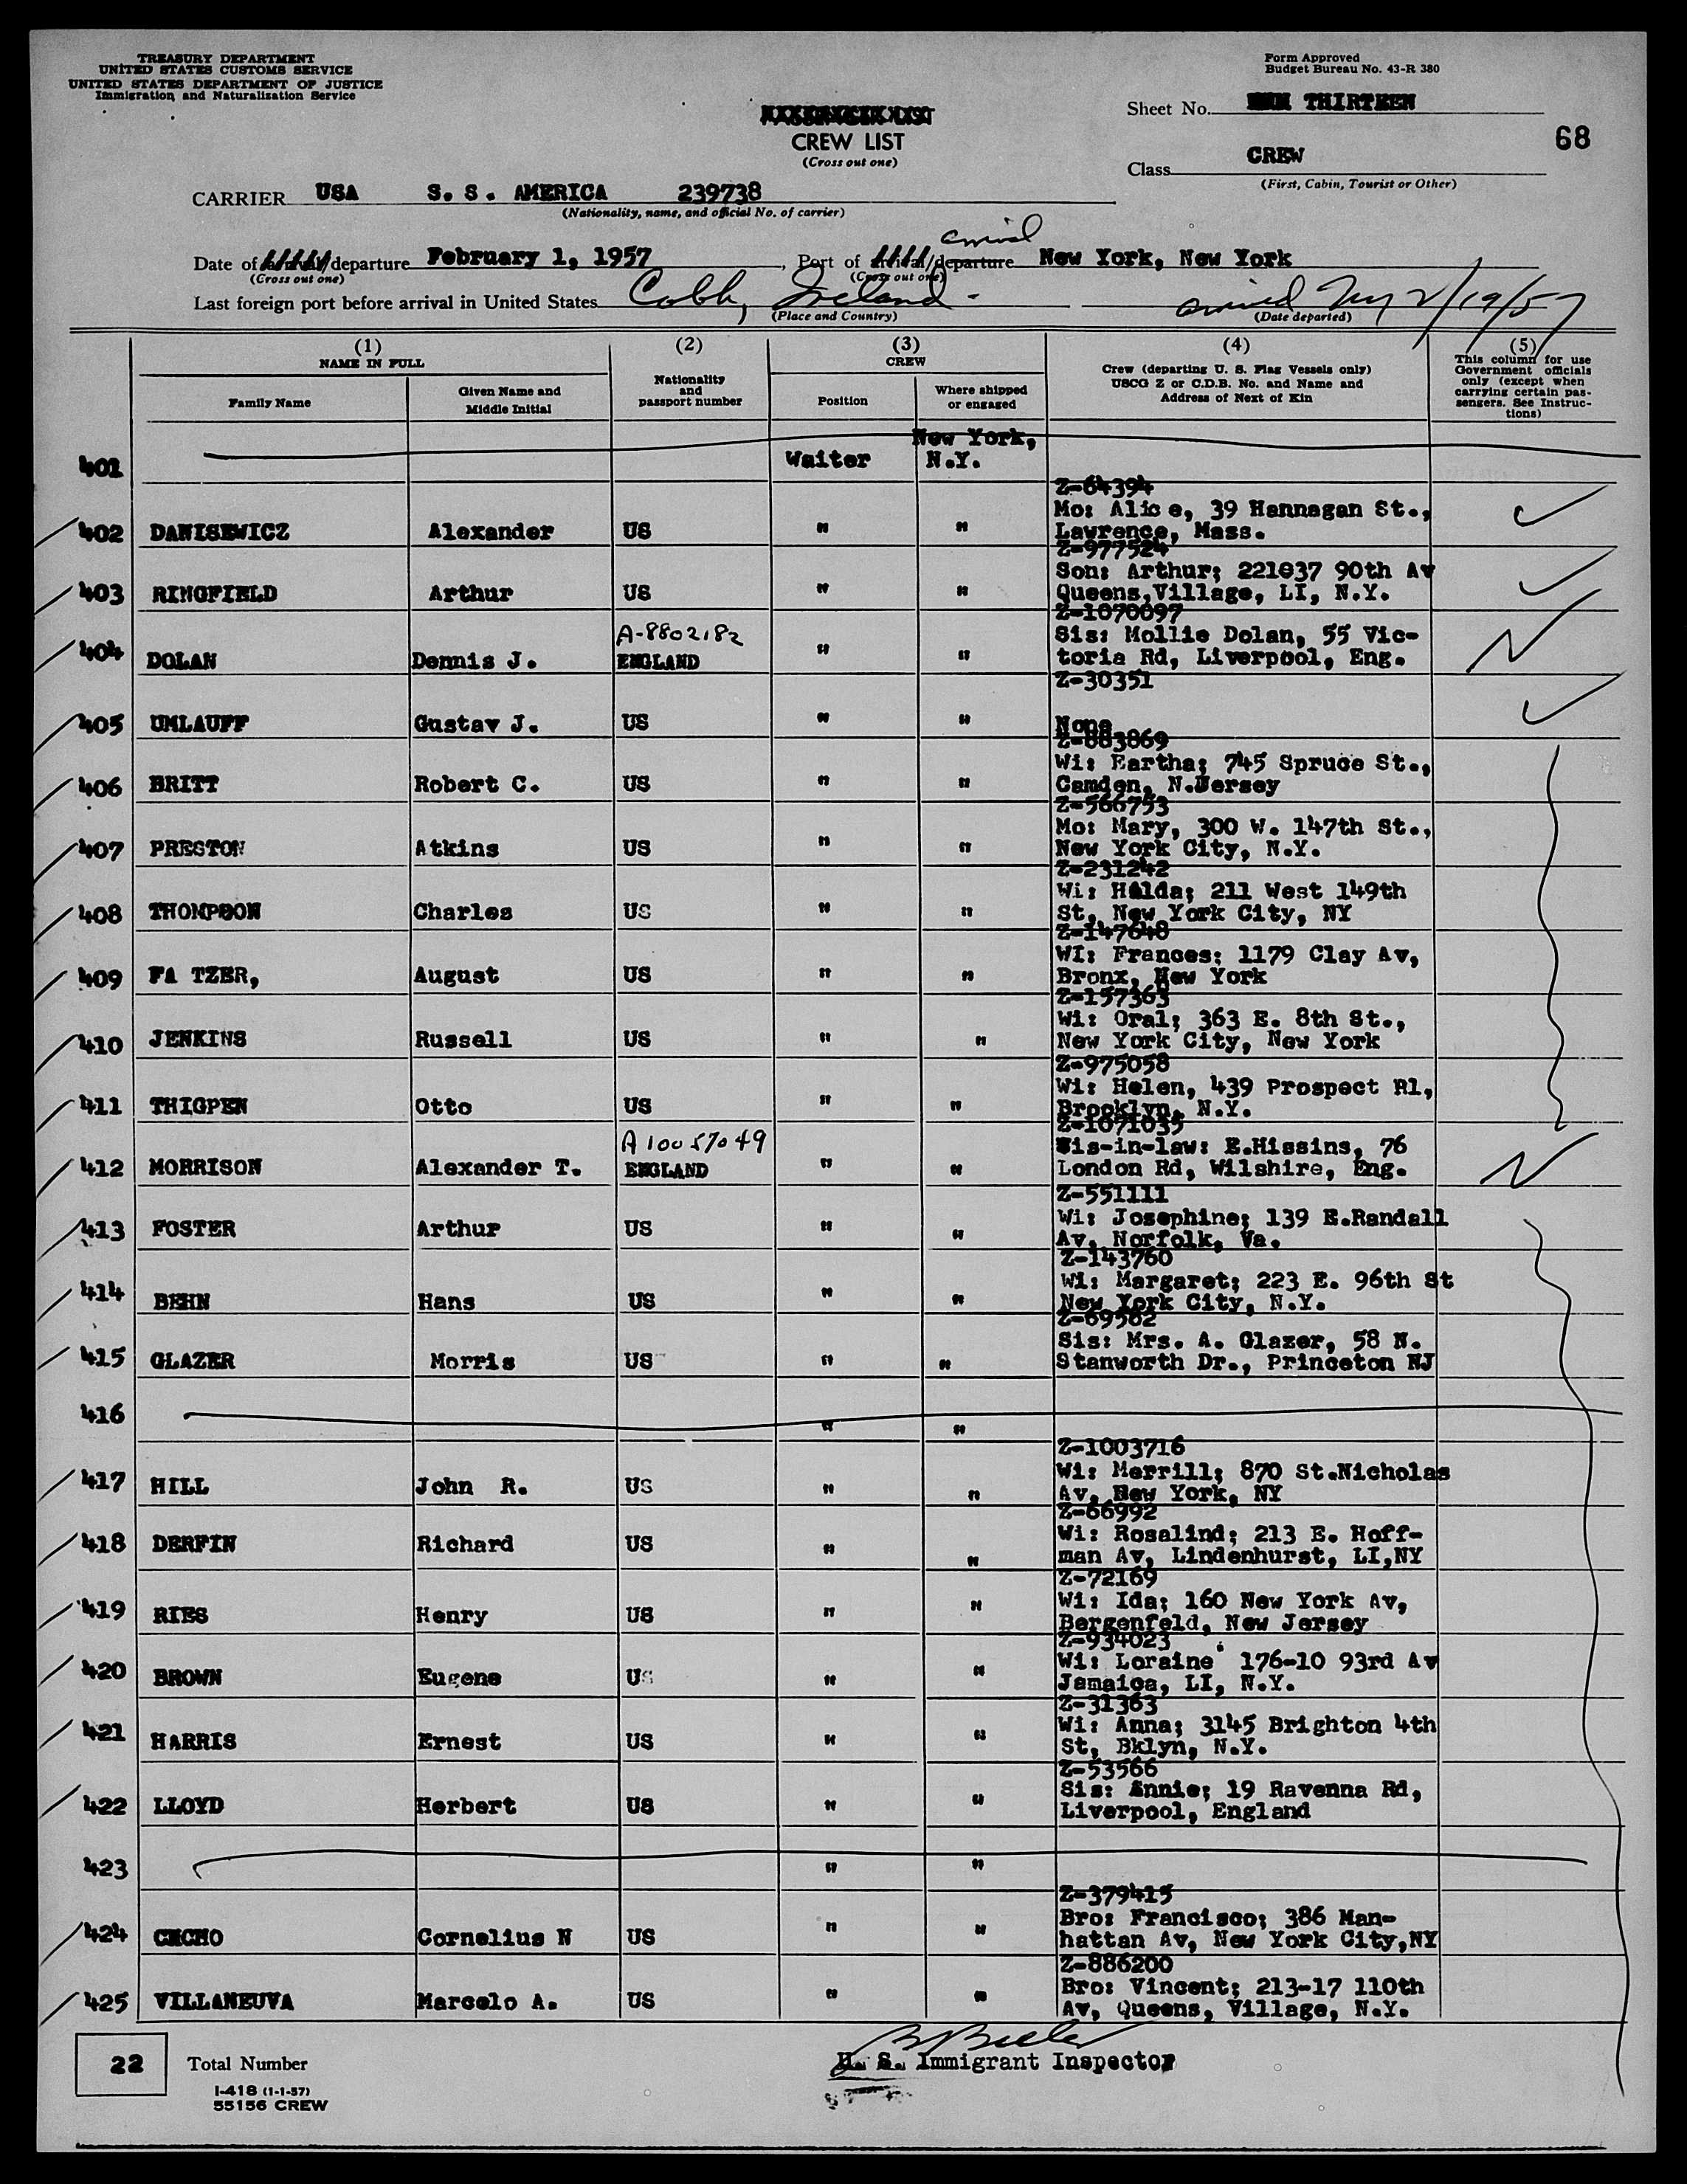 TREASURY DEPARTMENT
UNITED STATES CUSTOMS SERVICE
UNITED STATES DEPARTMENT OF JUSTICE
Immigration and Naturalization Service
Form Approved
Budget Bureau No. 43-R 380
Sheet No. THIRTEEN
68
CREW LIST
(Cross out one)
Class CREW
(First, Cabin, Tourist or Other)
CARRIER USA S. S. AMERICA 239738
(Nationality, name, and official No. of carrier)
arrival
Date of arrival/departure February 1, 1957, Port of arrival/departure New York, New York
(Cross out one) (Cross out one)
Last foreign port before arrival in United States Cobh, Ireland - arrived NY 2/19/57
(Place and Country) (Date departed)
(1) (2) (3) (4) (5)
NAME IN FULL CREW
Family Name Given Name and Middle Initial Nationality and passport number Position Where shipped or engaged Crew (departing U. S. Flag Vessels only) USCG Z or C.D.B. No. and Name and Address of Next of Kin This column for use Government officials only (except when carrying certain passengers. See Instructions)
New York,
401 Waiter N.Y.
Z-64394
Mo: Alice, 39 Hannagan St.,
402 DANISEWICZ Alexander US " " Lawrence, Mass.
Z-977524
Son: Arthur; 221037 90th Av
403 RINGFIELD Arthur US " " Queens,Village, LI, N.Y.
Z-1070097
A-8802182 Sis: Mollie Dolan, 55 Vic-
404 DOLAN Dennis J. ENGLAND " " toria Rd, Liverpool, Eng.
Z-30351
405 UMLAUFF Gustav J. US " " None
Z-883869
Wi: Eartha; 745 Spruce St.,
406 BRITT Robert C. US " " Camden, N.Jersey
Z-566753
Mo: Mary, 300 W. 147th St.,
407 PRESTON Atkins US " " New York City, N.Y.
Z-231242
Wi: Hilda; 211 West 149th
408 THOMPSON Charles US " " St, New York City, NY
Z-147648
WI: Frances; 1179 Clay Av,
409 FA TZER, August US " " Bronx, New York
Z-157363
Wi: Oral; 363 E. 8th St.,
410 JENKINS Russell US " " New York City, New York
Z-975058
Wi: Helen, 439 Prospect Pl,
411 THIGPEN Otto US " " Brooklyn, N.Y.
Z-1071035
A10057049 Sis-in-law: E.Hissins, 76
412 MORRISON Alexander T. ENGLAND " " London Rd, Wilshire, Eng.
Z-551111
Wi: Josephine; 139 E.Randall
413 FOSTER Arthur US " " Av, Norfolk, Va.
Z-143760
Wi: Margaret; 223 E. 96th St
414 BEHN Hans US " " New York City, N.Y.
Z-69562
Sis: Mrs. A. Glazer, 58 N.
415 GLAZER Morris US " " Stanworth Dr., Princeton NJ
416 " "
Z-1003716
Wi: Merrill; 870 St.Nicholas
417 HILL John R. US " " Av, New York, NY
Z-66992
Wi: Rosalind; 213 E. Hoff-
418 DERFIN Richard US " " man Av, Lindenhurst, LI,NY
Z-72169
Wi: Ida; 160 New York Av,
419 RIES Henry US " " Bergenfeld, New Jersey
Z-934023
Wi: Loraine 176-10 93rd Av
420 BROWN Eugene US " " Jamaica, LI, N.Y.
Z-31363
Wi: Anna; 3145 Brighton 4th
421 HARRIS Ernest US " " St, Bklyn, N.Y.
Z-53566
Sis: Annie; 19 Ravenna Rd,
422 LLOYD Herbert US " " Liverpool, England
423 " "
Z-379415
Bro: Francisco; 386 Man-
424 CHCHO Cornelius N US " " hattan Av, New York City,NY
Z-886200
Bro: Vincent; 213-17 110th
425 VILLANEUVA Marcelo A. US " " Av, Queens, Village, N.Y.
22 Total Number
U. S. Immigrant Inspector
I-418 (1-1-57)
55156 CREW